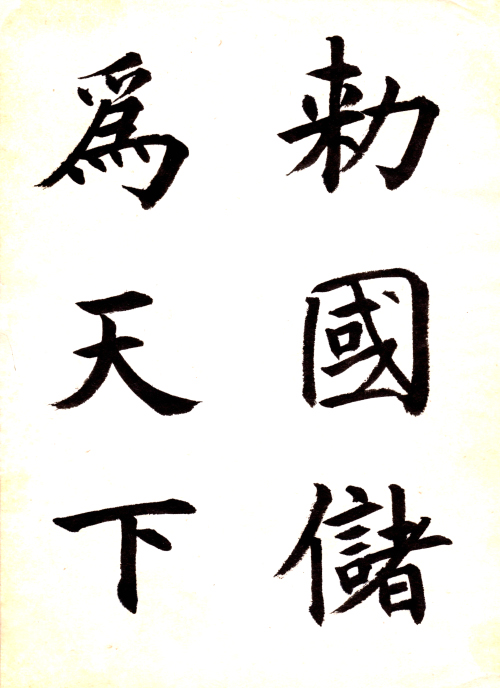 勑國儲
爲天下